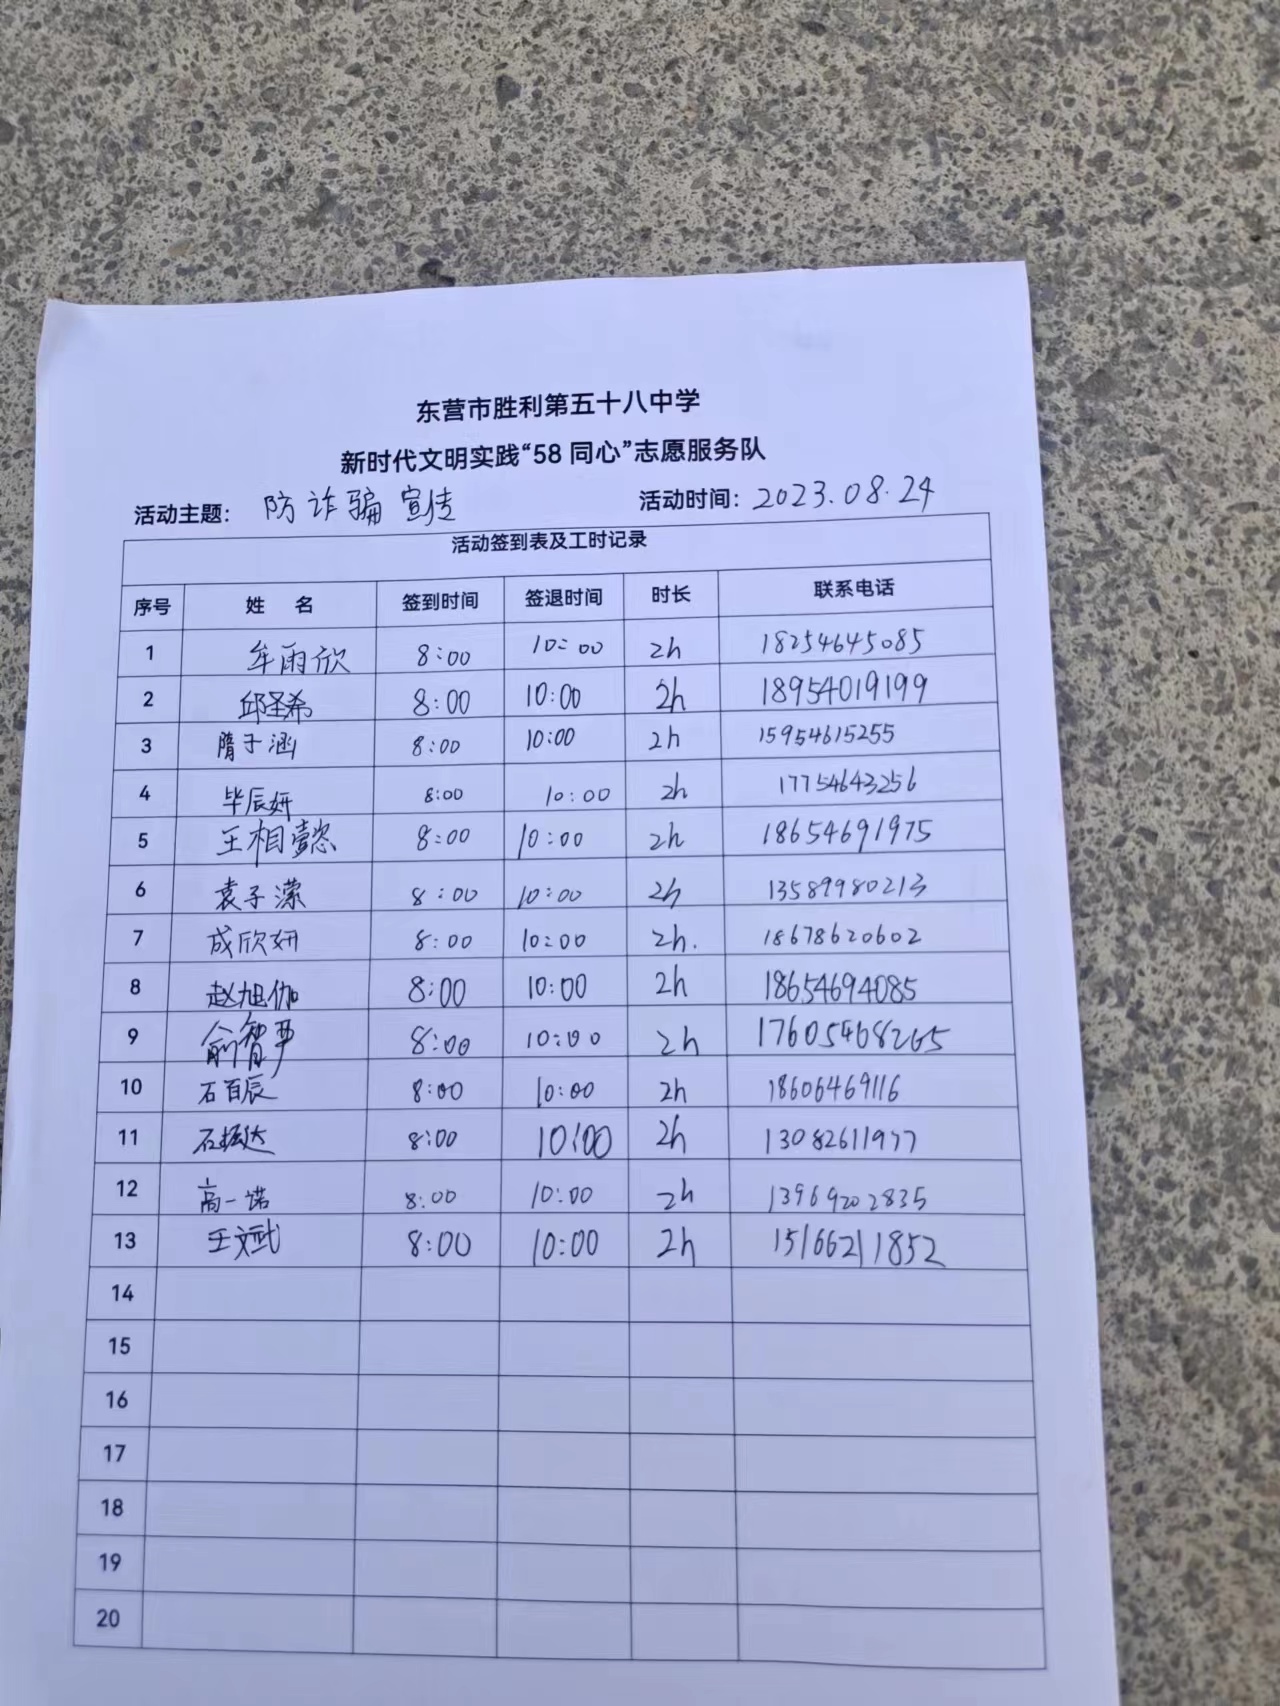 东营市胜利第五十八中学
新时代文明实践“58 同心”志愿服务队
活动主题: 防诈骗宣传 活动时间: 2023.08.24
活动签到表及工时记录
序号 姓 名 签到时间 签退时间 时长 联系电话
1 牟雨欣 8:00 10:00 2h 18254645085
2 邱圣希 8:00 10:00 2h 18954019199
3 隋子涵 8:00 10:00 2h 15954615255
4 毕辰妍 8:00 10:00 2h 17754643256
5 王相懿 8:00 10:00 2h 18654691975
6 袁子濛 8:00 10:00 2h 13589980213
7 成欣妍 8:00 10:00 2h. 18678620602
8 赵旭伽 8:00 10:00 2h 18654694085
9 俞智严 8:00 10:00 2h 17605468265
10 石百辰 8:00 10:00 2h 18606469116
11 石振达 8:00 10:00 2h 13082611977
12 高一诺 8:00 10:00 2h 13969202835
13 王文武 8:00 10:00 2h 15166211852
14
15
16
17
18
19
20